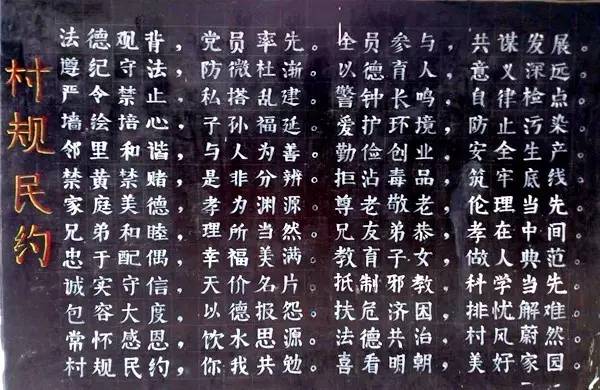 村规民约
法德观背，党员率先。全员参与，共谋发展。
遵纪守法，防微杜渐。以德育人，意义深远。
严令禁止，私搭乱建。警钟长鸣，自律检点。
墙绘培心，子孙福延。爱护环境，防止污染。
邻里和谐，与人为善。勤俭创业，安全生产。
禁黄禁赌，是非分辨。拒沾毒品，筑牢底线。
家庭美德，孝为渊源。尊老敬老，伦理当先。
兄弟和睦，理所当然。兄友弟恭，孝在中间。
忠于配偶，幸福美满。教育子女，做人典范。
诚实守信，天价名片。抵制邪教，科学当先。
包容大度，以德报怨。扶危济困，排忧解难。
常怀感恩，饮水思源。法德共治，村风蔚然。
村规民约，你我共勉。喜看明朝，美好家园。